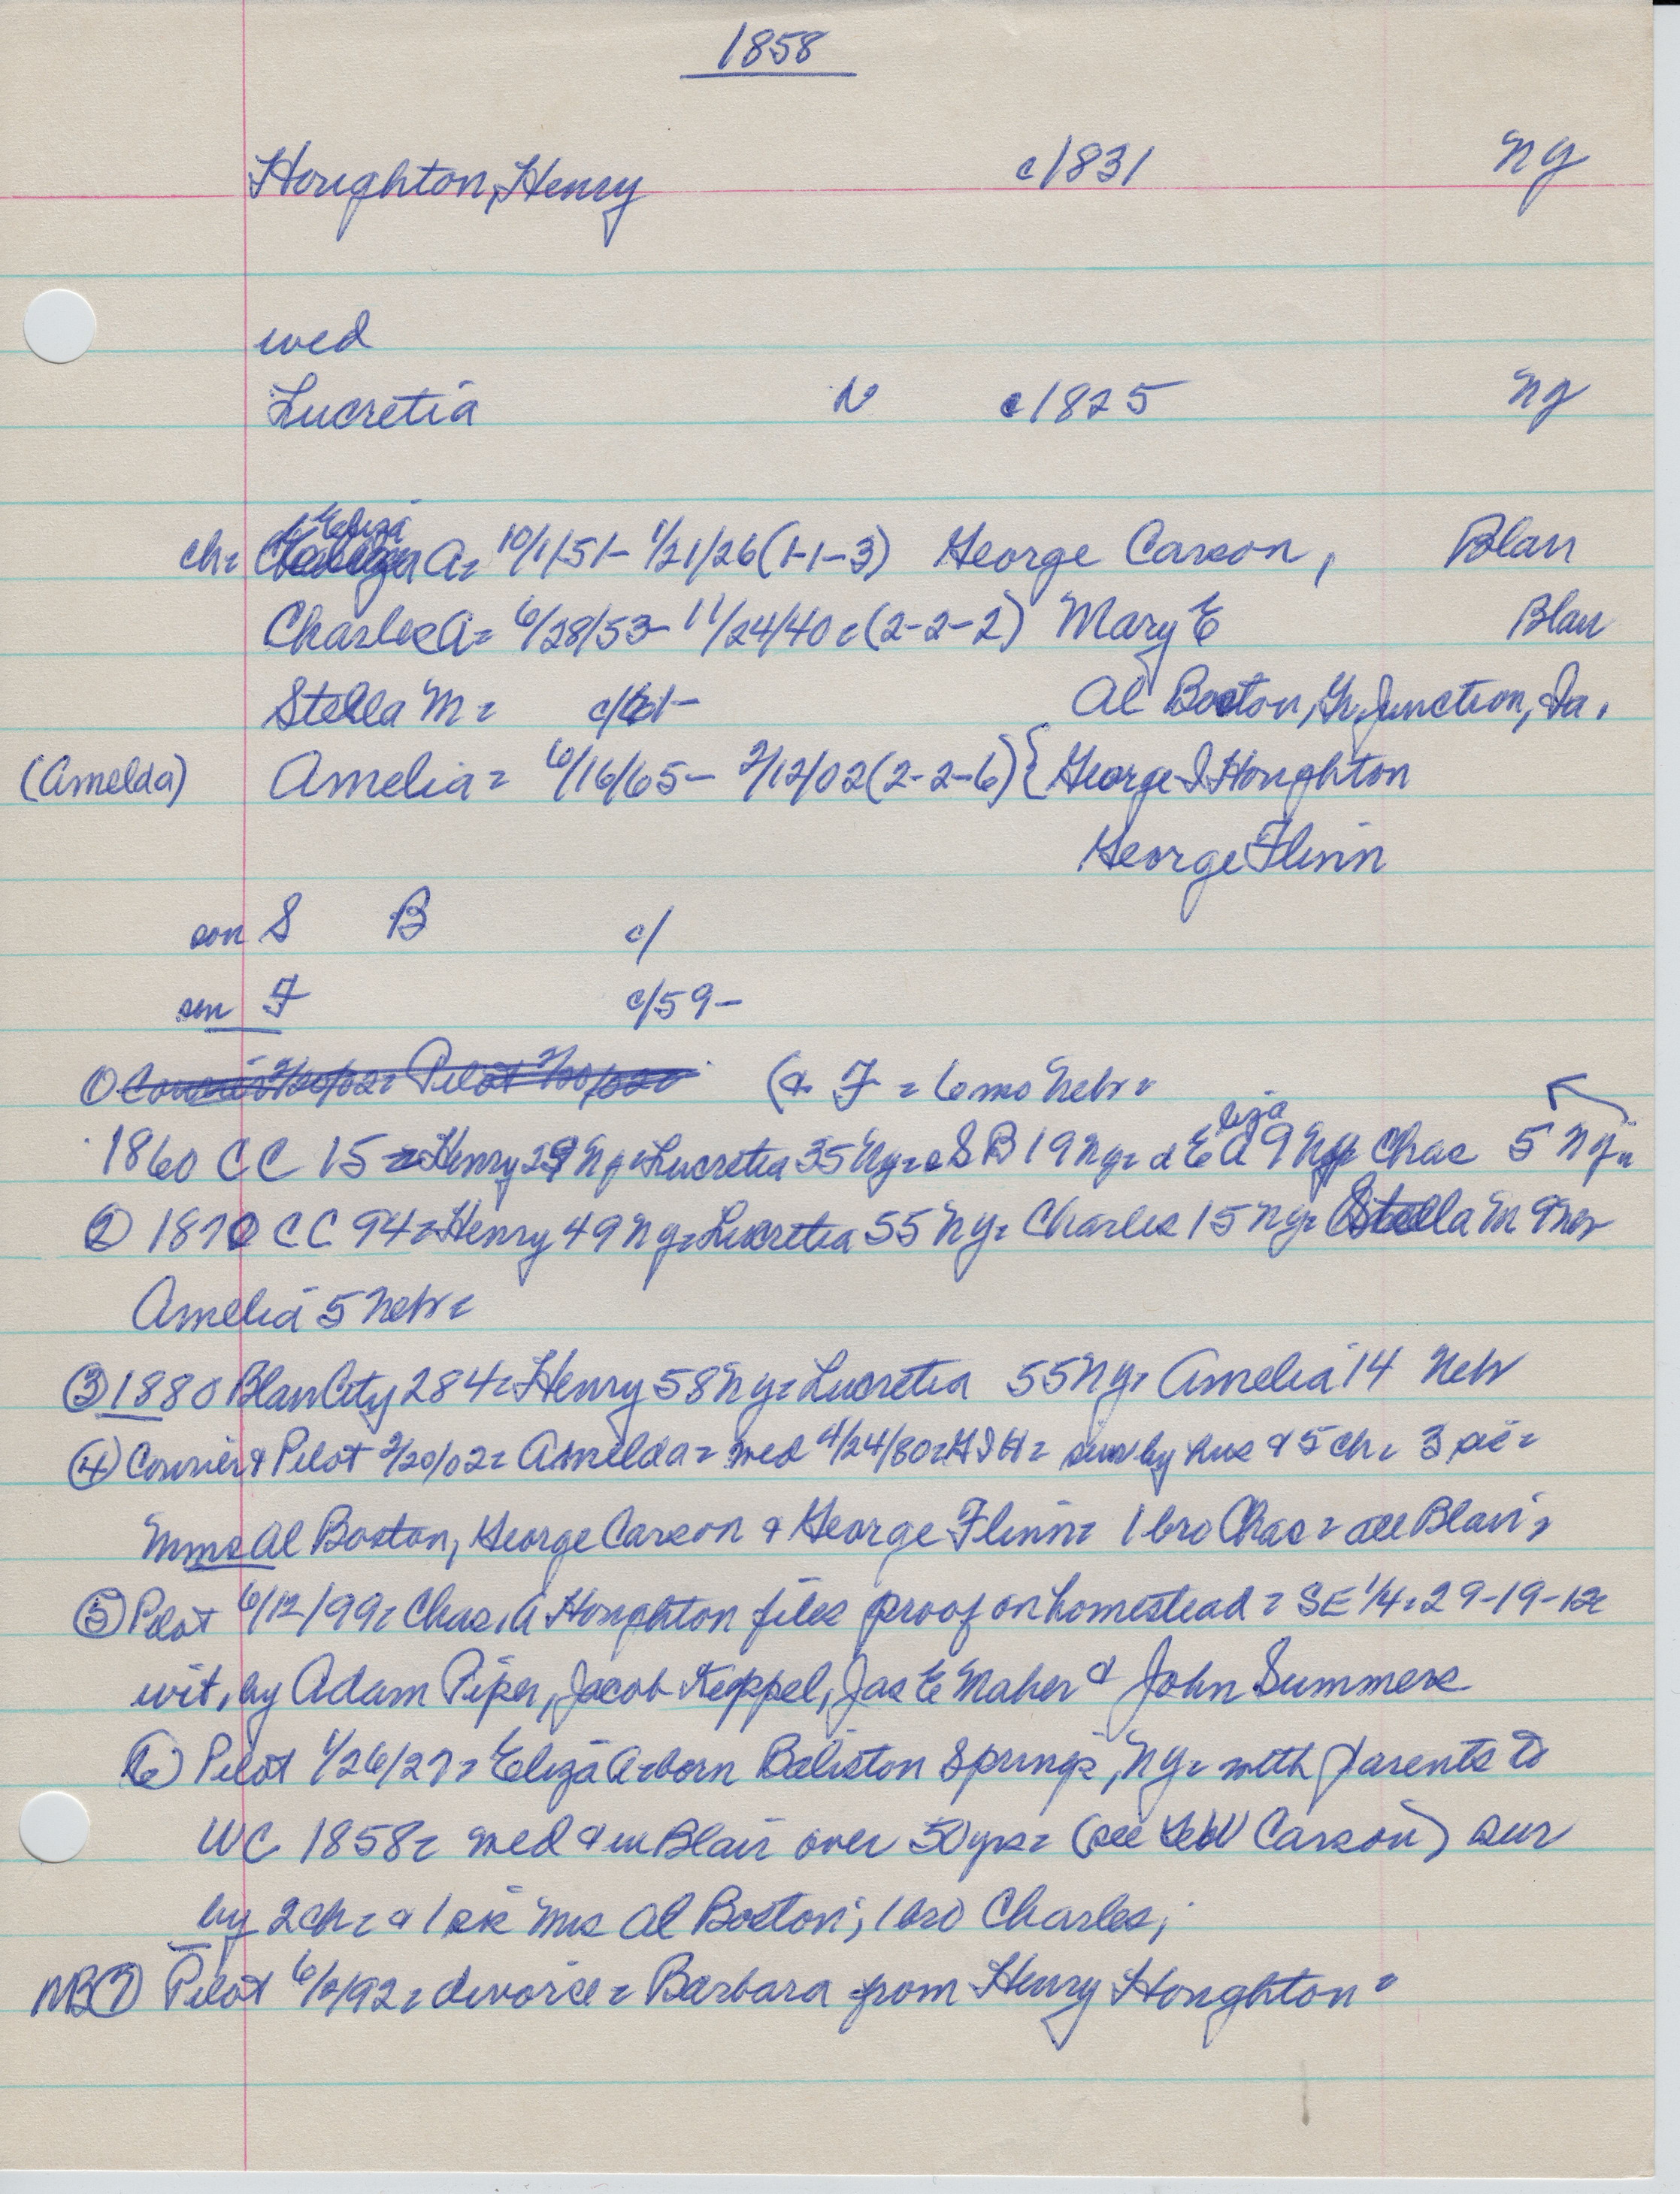 1858
Houghton, Henry c1831 Ny
wed
Lucretia N c1825 Ny
Eliza
ch= A= 10/1/51- 1/21/26(1-1-3) George Carson, Blair
Charles A= 6/28/53- 11/24/40=(2-2-2) Mary E Blair
Stella M= c/61- Al Boston, Gr. Junction, Ia.
(Amelda) Amelia= 6/16/65- 2/12/02(2-2-6){George I Houghton
George Flinn
son S B c/
son F c/59-
① Courier 2/20/02= Pilot 2/20/02= (& F = 6mo Nebr=
liza
1860 CC 15= Henry 29 Ny= Lucretia 35 Ny= S B 19 Ny= d E A 9 Ny= Chas 5 Ny=
② 1870 CC 94= Henry 49 Ny= Lucretia 55 Ny= Charles 15 Ny= Stella M 9
Amelia 5 Nebr=
③ 1880 Blair City 284= Henry 58 Ny= Lucretia 55 Ny= Amelia 14 Nebr
④ Courier & Pilot 2/20/02= Amelda= wed 4/24/80= G I H= sur by hus & 5 ch= 3 sis=
Mmes Al Boston, George Carson & George Flinn= 1 bro Chas= all Blair=
⑤ Pilot 6/12/99= Chas. A Houghton files proof on homestead= SE 1/4= 29-19-12=
wit. by Adam Piper, Jacob Keppel, Jas E Maher & John Summers
⑥ Pilot 1/26/27= Eliza A= born Balston Springs, Ny= with parents to
WC 1858= wed & in Blair over 50 yrs= (see Carson) sur
by 2 ch= & 1 sis Mrs Al Boston; 1 bro Charles;
NB⑦ Pilot 6/ /92= divorce= Barbara from Henry Houghton=